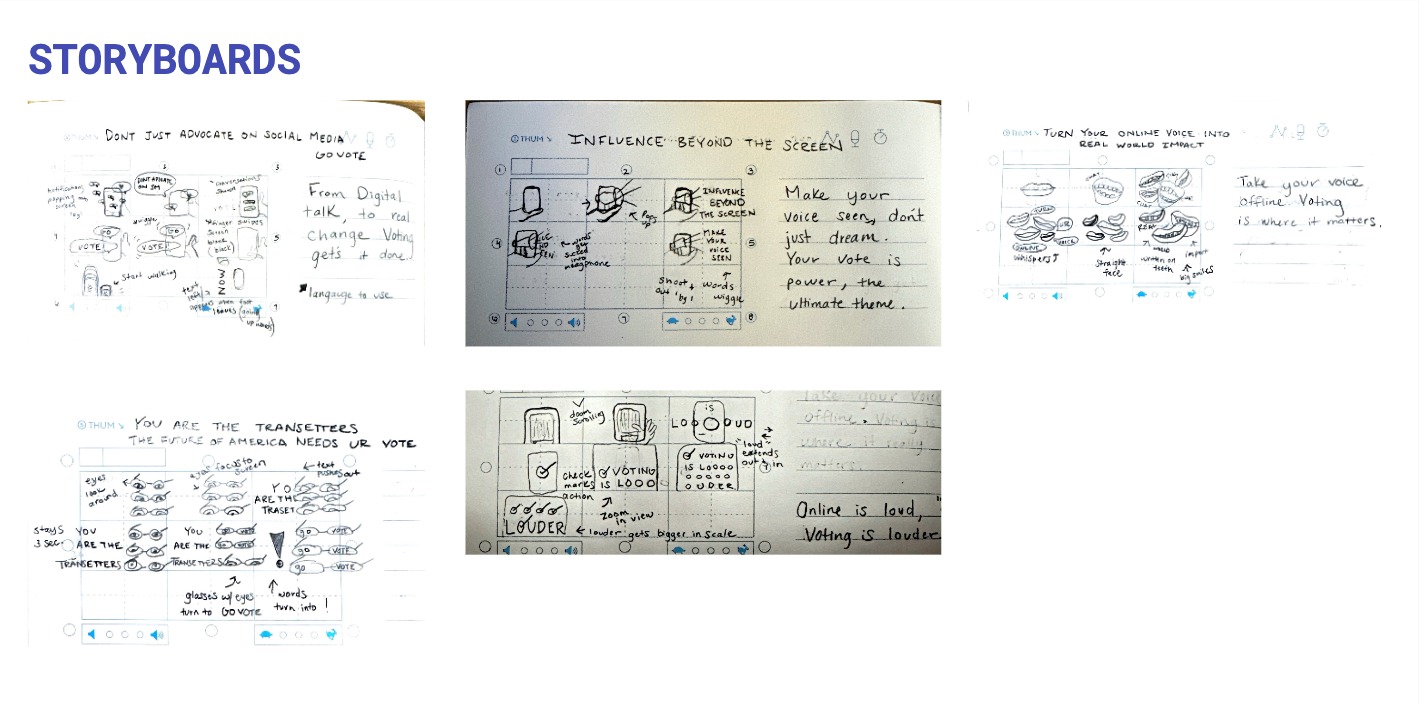 STORYBOARDS
DONT JUST ADVOCATE ON SOCIAL MEDIA
GO VOTE
From Digital
talk, to real
change Voting
gets it done
langauge to use
VOTE!
VOTE!
Start walking
NOW
THUM
INFLUENCE BEYOND THE SCREEN
INFLUENCE
BEYOND
THE SCREEN
MAKE
YOUR
VOICE
SEEN
words
get
sucked
into
megaphone
shoot
out
words
wiggle
Make your
voice seen, don't
just dream.
Your vote is
power, the
ultimate theme.
THUM
TURN YOUR ONLINE VOICE INTO
REAL WORLD IMPACT
whispers
straight
face
written on
teeth
big smiles
Take your voice
offline. Voting
is where it matters.
THUM
YOU ARE THE TRANSETTERS
THE FUTURE OF AMERICA NEEDS UR VOTE
eyes
look
around
focus to
screen
text
pushes out
YO
ARE THE
TRASET
stays
3 sec
YOU
ARE THE
TRANSETTERS
YOU
ARE THE
TRANSETTERS
!
GO VOTE
GO VOTE
GO VOTE
glasses w/ eyes
turn to GO VOTE
words
turn into !
doom
scrolling
is
LOOOUD
"loud"
extends
out + in
check
marks
action
VOTING
IS LOOO
VOTING
IS LOOOO
OOOOO
OUDER
zoom
in view
LOUDER
louder gets bigger in scale
Take your voice
offline. Voting is
where it really
matters.
Online is loud,
Voting is louder